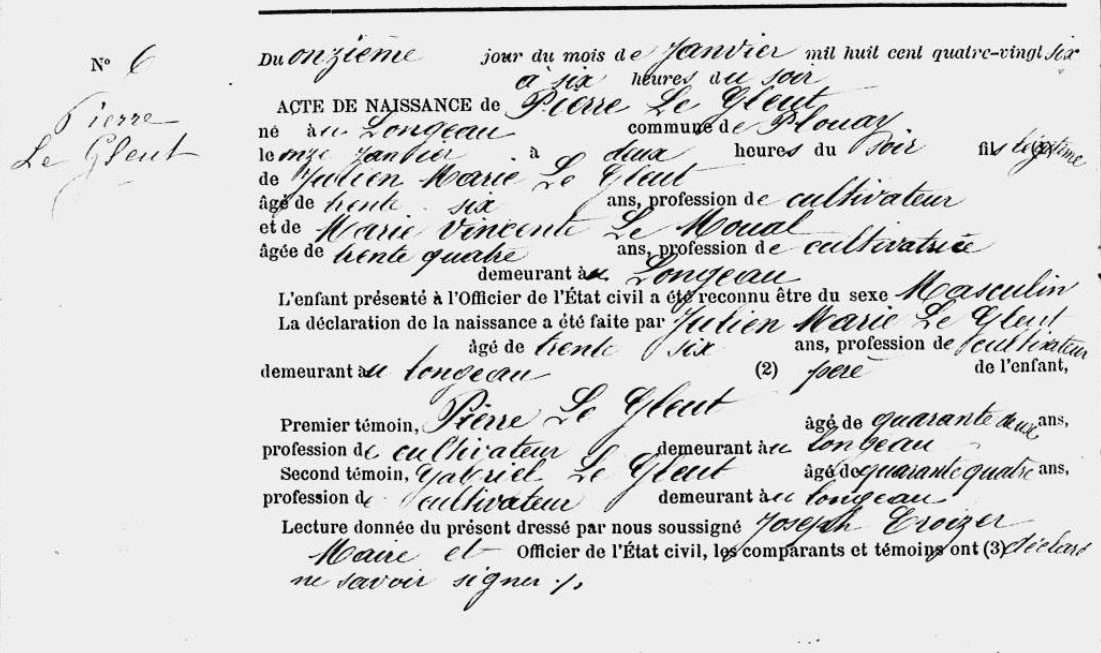 N° 6
Pierre
Le Gleut
Du onzième jour du mois de Janvier mil huit cent quatre-vingt six
à six heures du soir
ACTE DE NAISSANCE de Pierre Le Gleut
né à u Longeau commune de Plouay
le onze Janvier à deux heures du soir fils légitime
de Julien Marie Le Gleut
âgé de trente six ans, profession de cultivateur
et de Marie Vincente Le Moual
âgée de trente quatre ans, profession de cultivatrice
demeurant à u Longeau
L'enfant présenté à l'Officier de l'État civil a été reconnu être du sexe Masculin
La déclaration de la naissance a été faite par Julien Marie Le Gleut
âgé de trente six ans, profession de cultivateur
demeurant à u longeau (2) père de l'enfant,
Premier témoin, Pierre Le Gleut âgé de quarante deux ans,
profession de cultivateur demeurant à u longeau
Second témoin, Gabriel Le Gleut âgé de quarante quatre ans,
profession de cultivateur demeurant à u longeau
Lecture donnée du présent dressé par nous soussigné Joseph Croizer
Maire et Officier de l'État civil, les comparants et témoins ont (3) déclaré
ne savoir signer ./.